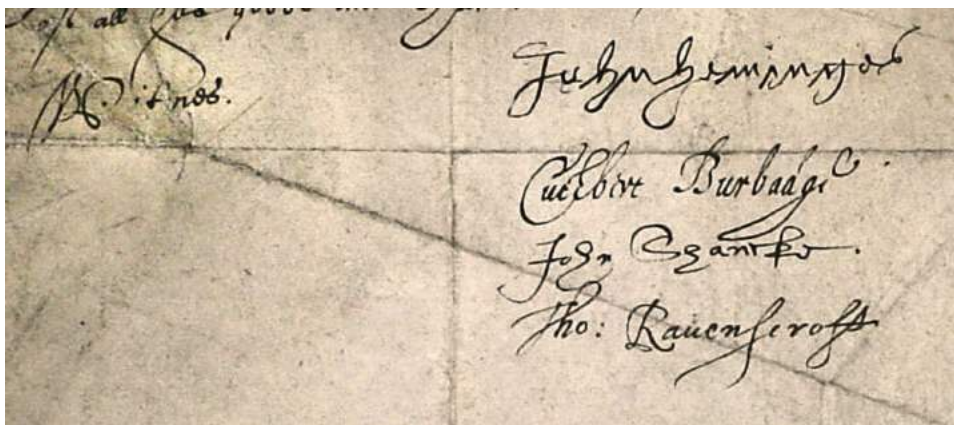 all his goods
Witnes.
John heminges
Cuthbert Burbadge
John Shancke.
Tho: Ravenscroft